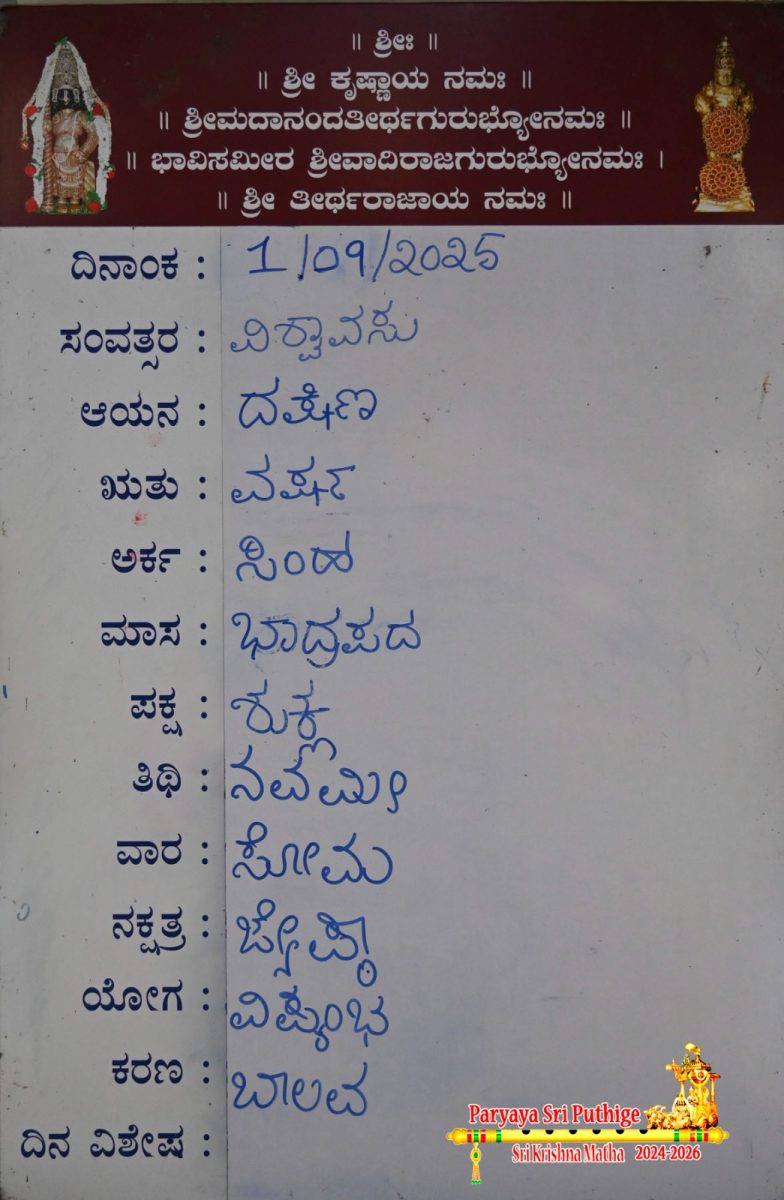 ॥ ಶ್ರೀಃ ॥
॥ ಶ್ರೀ ಕೃಷ್ಣಾಯ ನಮಃ ॥
॥ ಶ್ರೀಮದಾನಂದತೀರ್ಥಗುರುಭ್ಯೋನಮಃ ॥
॥ ಭಾವಿಸಮೀರ ಶ್ರೀವಾದಿರಾಜಗುರುಭ್ಯೋನಮಃ ।
॥ ಶ್ರೀ ತೀರ್ಥರಾಜಾಯ ನಮಃ ॥
ದಿನಾಂಕ : 1/09/2025
ಸಂವತ್ಸರ : ವಿಶ್ವಾವಸು
ಆಯನ : ದಕ್ಷಿಣ
ಋತು : ವರ್ಷ
ಅರ್ಕ : ಸಿಂಹ
ಮಾಸ : ಭಾದ್ರಪದ
ಪಕ್ಷ : ಶುಕ್ಲ
ತಿಥಿ : ನವಮೀ
ವಾರ : ಸೋಮ
ನಕ್ಷತ್ರ : ಜ್ಯೇಷ್ಠಾ
ಯೋಗ : ವಿಷ್ಕಂಭ
ಕರಣ : ಬಾಲವ
ದಿನ ವಿಶೇಷ :
Paryaya Sri Puthige
Sri Krishna Matha 2024-2026